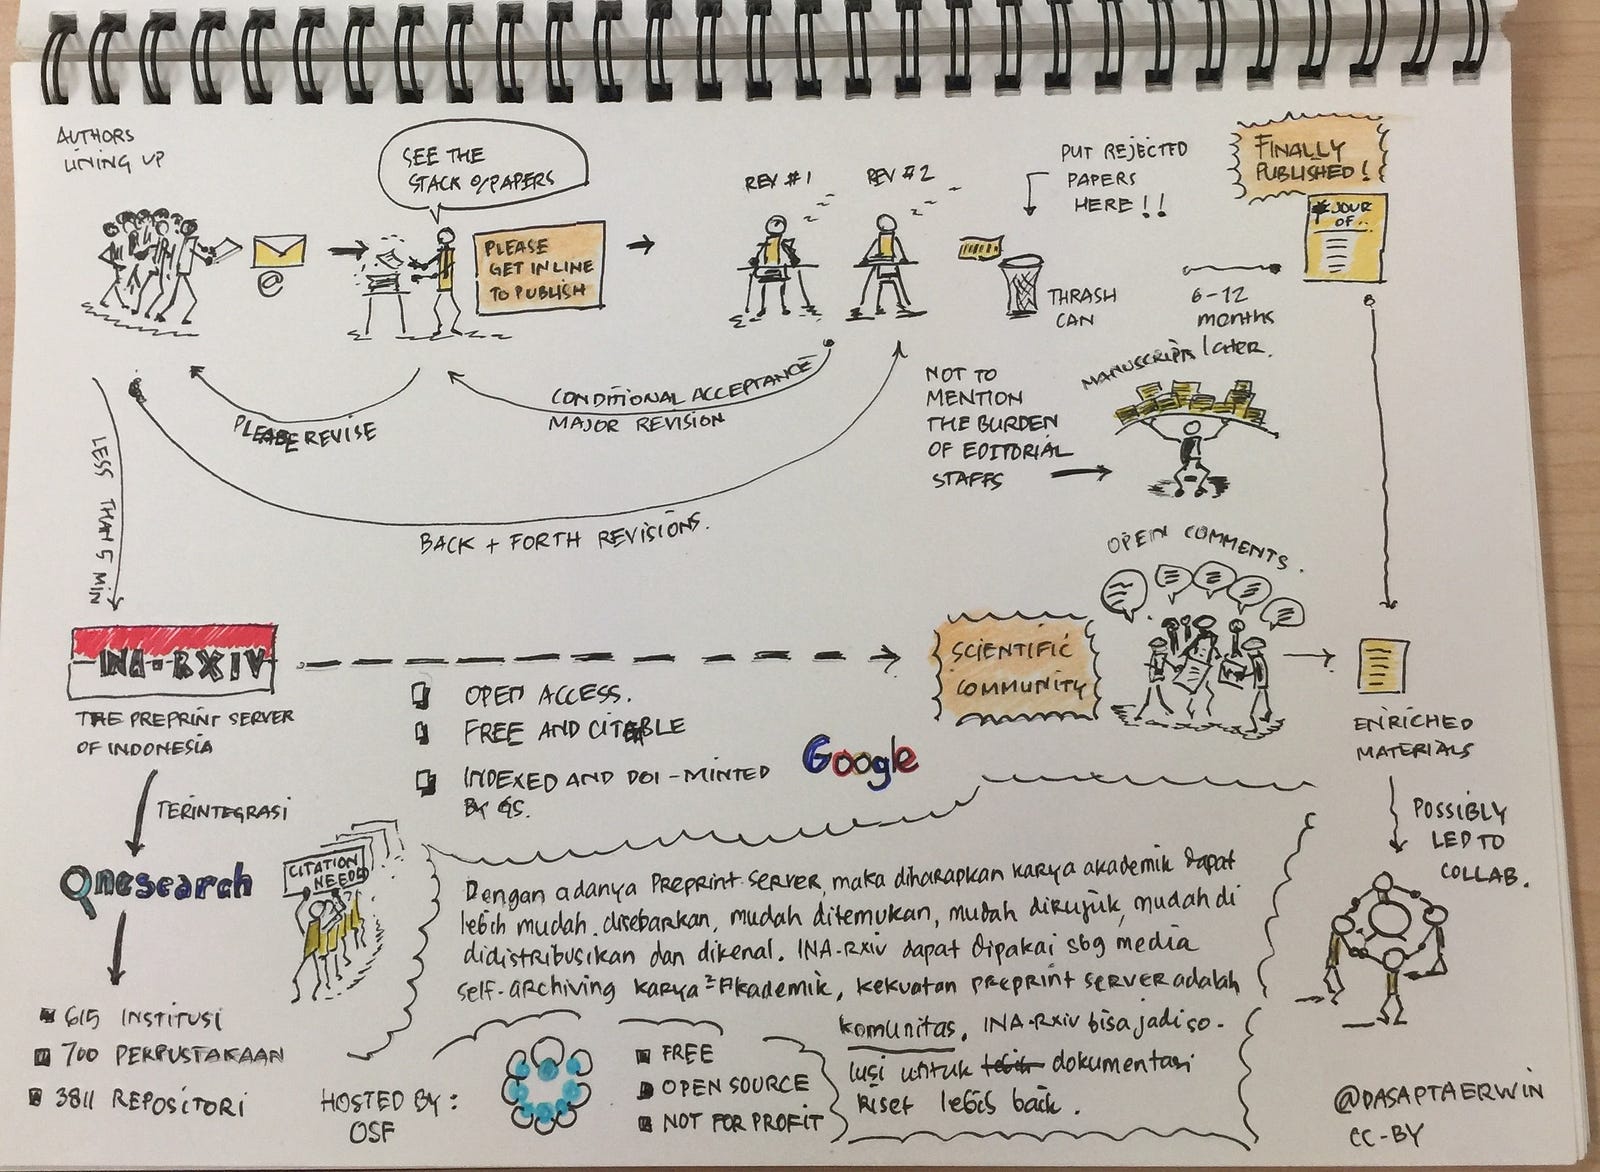 AUTHORS
LINING UP
SEE THE
STACK O/PAPERS
@
PLEASE
GET IN LINE
TO PUBLISH
REV #1
REV #2
PUT REJECTED
PAPERS
HERE!!
THRASH
CAN
FINALLY
PUBLISHED!
JOUR
OF..
6-12
months
later.
PLEASE REVISE
CONDITIONAL ACCEPTANCE
MAJOR REVISION
BACK + FORTH REVISIONS.
NOT TO
MENTION
THE BURDEN
OF EDITORIAL
STAFFS
MANUSCRIPTS
LESS THAN 5 MIN
INA-RXIV
THE PREPRINT SERVER
OF INDONESIA
OPEN ACCESS.
FREE AND CITABLE
INDEXED AND DOI-MINTED
BY GS.
Google
SCIENTIFIC
COMMUNITY
OPEN COMMENTS.
ENRICHED
MATERIALS
POSSIBLY
LED TO
COLLAB.
TERINTEGRASI
Onesearch
615 INSTITUSI
700 PERPUSTAKAAN
3811 REPOSITORI
CITATION
NEEDED
Dengan adanya PREPRINT-SERVER, maka diharapkan karya akademik dapat
lebih mudah disebarkan, mudah ditemukan, mudah dirujuk, mudah di
didistribusikan dan dikenal. INA-RXIV dapat dipakai sbg media
self-archiving karya2 Akademik, kekuatan PREPRINT SERVER adalah
komunitas. INA-RXIV bisa jadi so-
lusi untuk lebih dokumentasi
Riset lebih baik.
HOSTED BY:
OSF
FREE
OPEN SOURCE
NOT FOR PROFIT
@DASAPTAERWIN
CC-BY